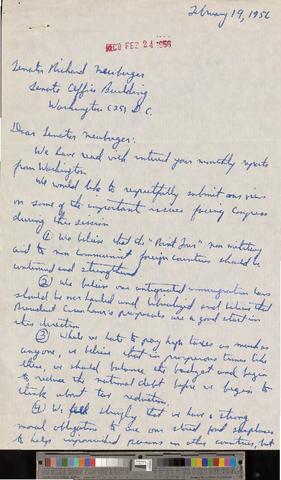 February 19, 1956
REC'D FEB 24 1956
Senator Richard Neuberger
Senate Office Building
Washington (25) D.C.
Dear Senator Neuberger:
We have read with interest your monthly reports
from Washington.
We would like to respectfully submit our views
on some of the important issues facing Congress
during this session
① We believe that the "Point Four" non military
aid to non communist foreign countries should be
continued and strengthened.
② We believe our immigration laws
should be over hauled and liberalized and believe that
President Eisenhower's proposals are a good start in
this direction
③ While we hate to pay high taxes as much as
anyone, we believe that in prosperous times like
these, we should balance the budget and begin
to reduce the national debt before we begin to
think about tax reduction.
④ We feel strongly that we have a strong
moral obligation to use our stored food surpluses
to help impoverished persons in other countries, but